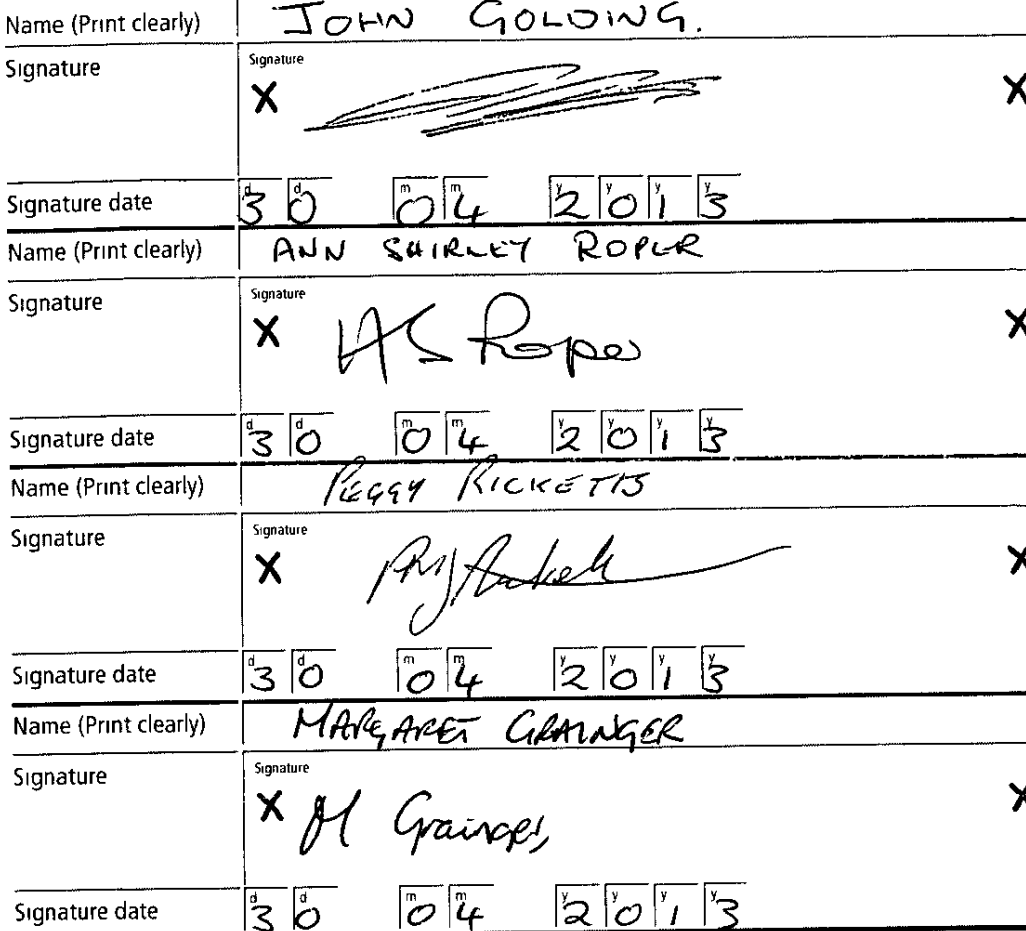 Name (Print clearly) JOHN GOLDING.
Signature Signature
X X
Signature date d3 d0 m0 m4 y2 y0 y1 y3
Name (Print clearly) ANN SHIRLEY ROPER
Signature Signature
X AS Roper X
Signature date d3 d0 m0 m4 y2 y0 y1 y3
Name (Print clearly) PEGGY RICKETTS
Signature Signature
X X
Signature date d3 d0 m0 m4 y2 y0 y1 y3
Name (Print clearly) MARGARET GRAINGER
Signature Signature
X M Grainger X
Signature date d3 d0 m0 m4 y2 y0 y1 y3